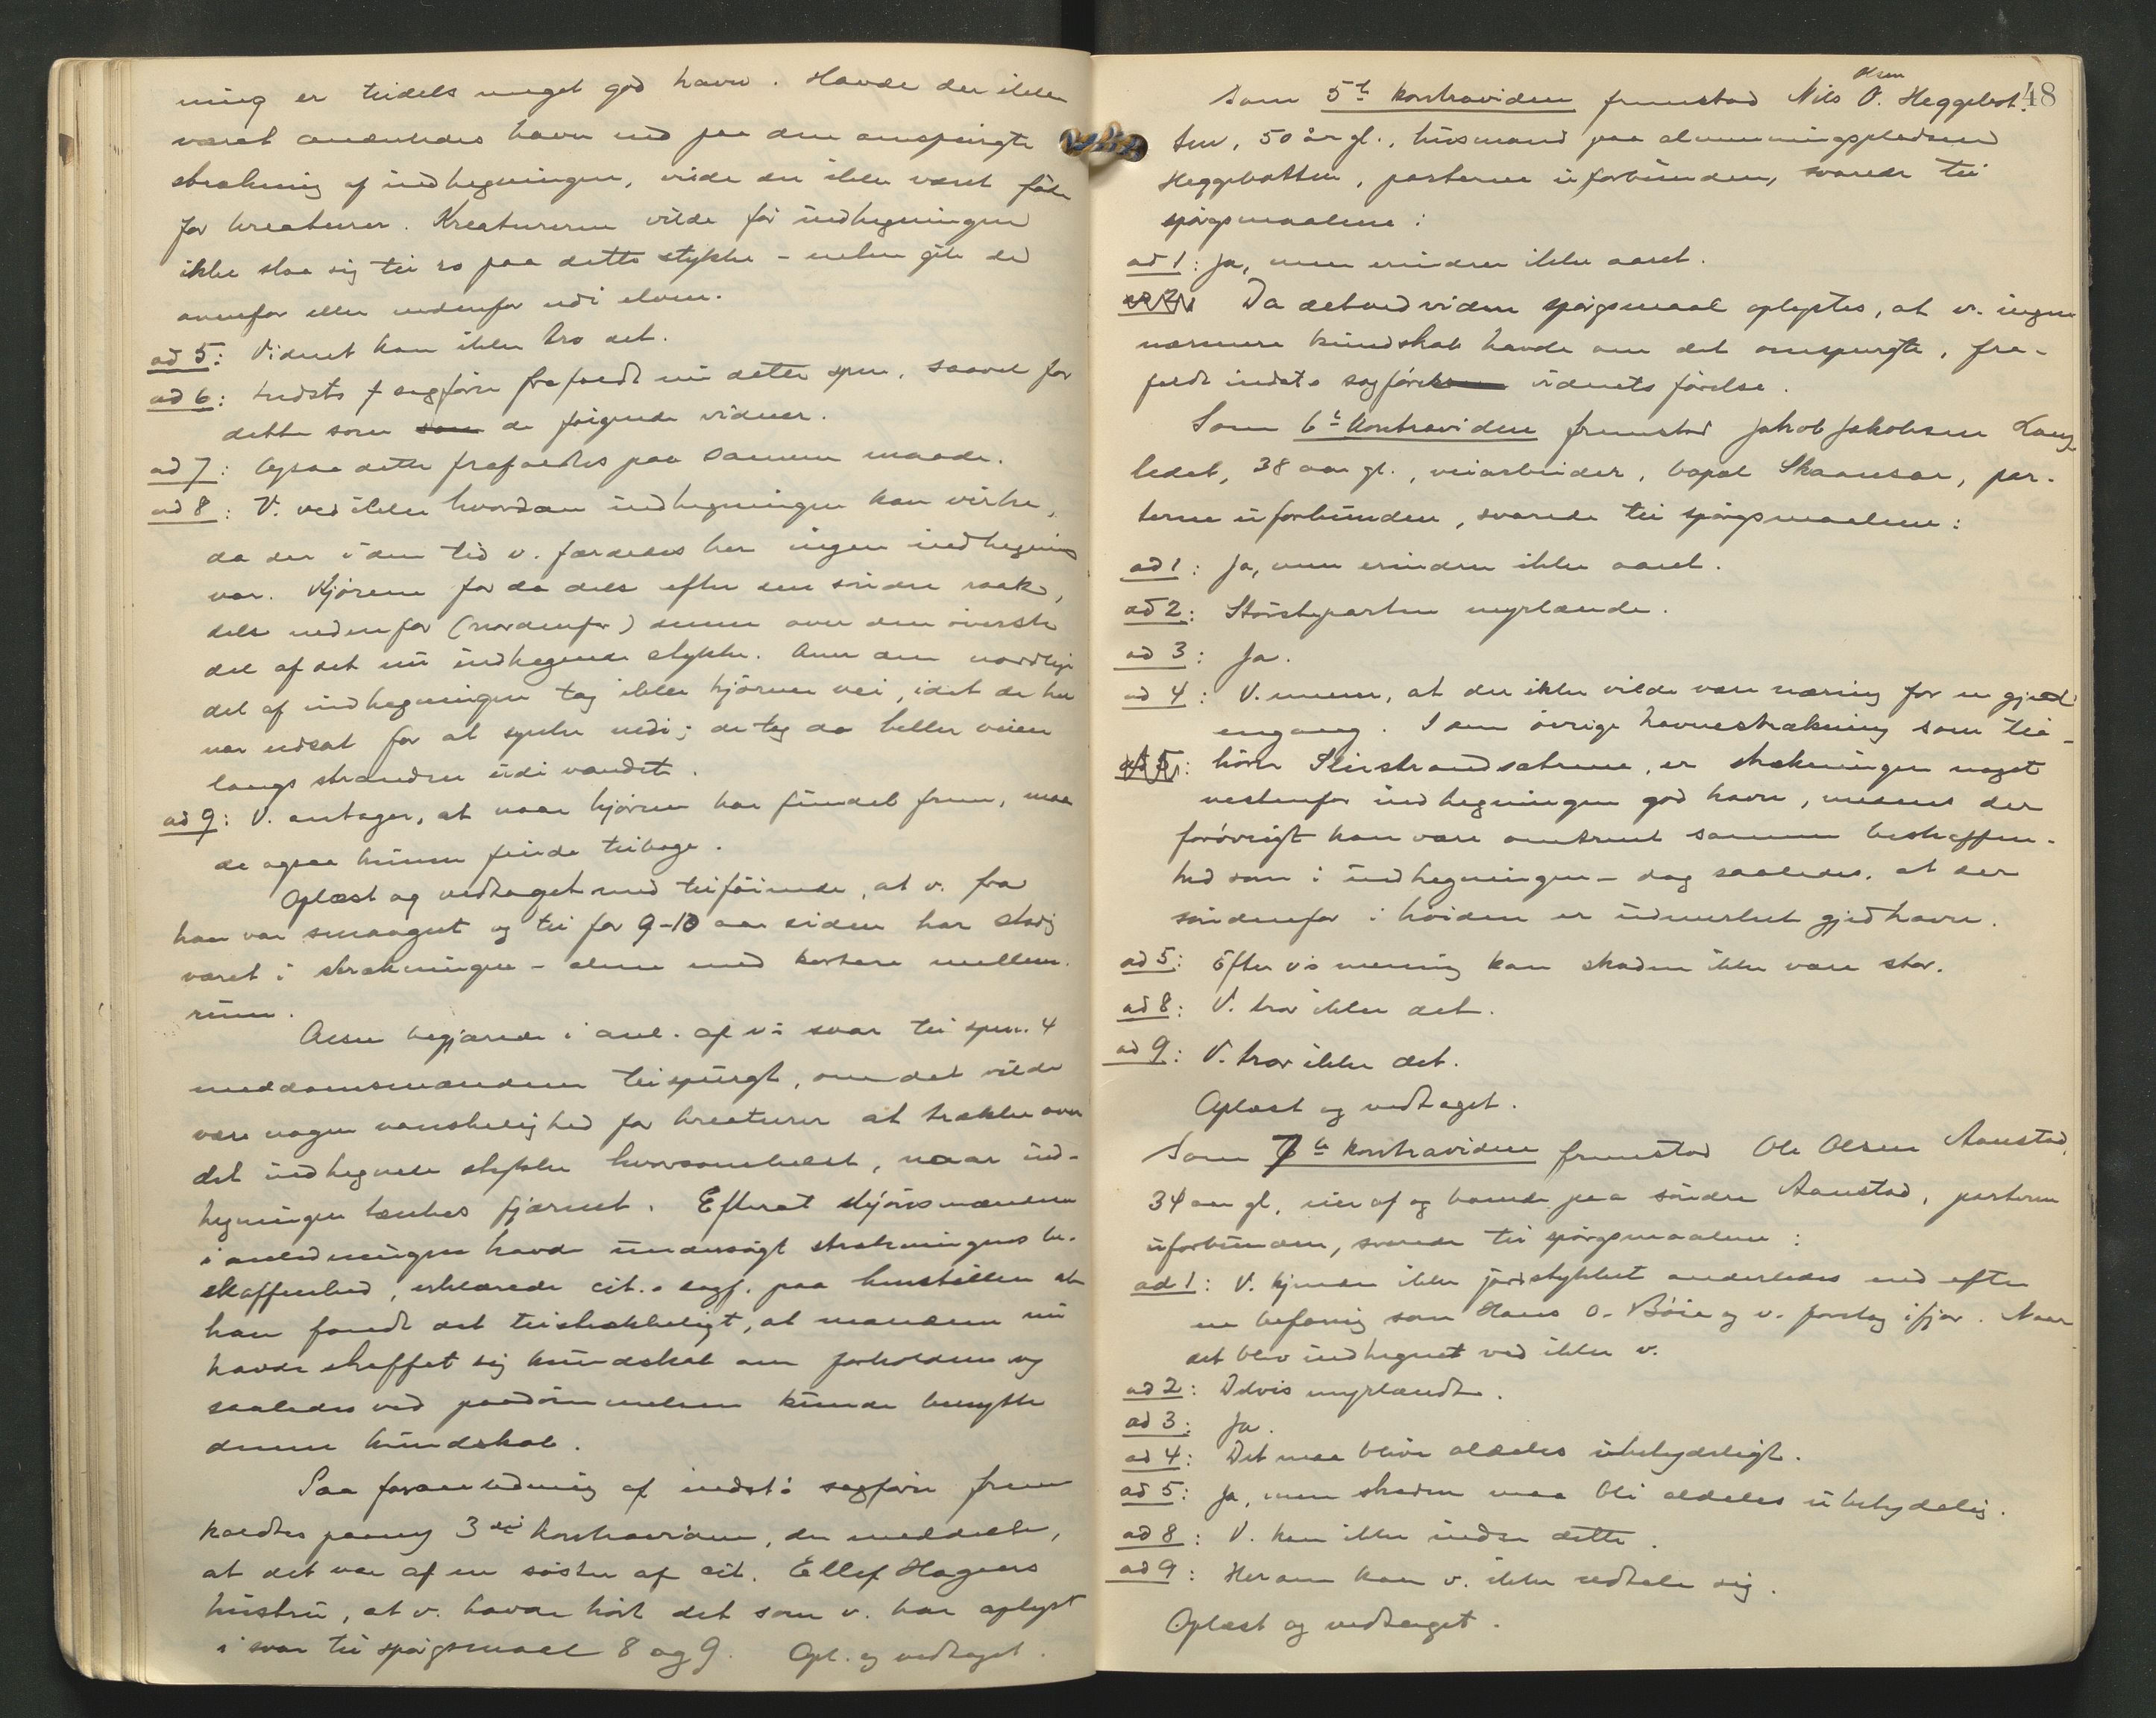 ning er tildels meget god havn. Havde der ikke
været anderledes havn end paa den omspurgte
strækning af indhegningen, vilde der ikke været føde
for kreaturer. Kreaturerne vilde før indhegningen
ikke slaa sig til ro paa dette stykke - uden gik de
ovenfor eller nedenfor udi elven.
ad 5: Vidnet kan ikke tro det.
ad 6: Indsts sagfører frafaldt nu dette spm. saavel for
dette som de følgende vidner.
ad 7: Ogsaa dette frafaldtes paa samme maade.
ad 8: V. ved ikke hvordan indhegningen kan virke,
da der i den tid v. færdedes her ingen indhegning
var. Kjørene for da dels efter den søndre raak,
dels nedenfor (nordenfor) denne over den øverste
del af det nu indhegnede stykke. Over den nordlige
del af indhegningen tog ikke kjørene vei, idet de her
var udsat for at synke nedi; de tog da heller veien
langs stranden udi vandet.
ad 9: V. antager, at naar kjørene har fundet frem, maa
de ogsaa kunne finde tilbage.
Oplæst og vedtaget med tilføiende, at v. fra
han var smaagut og til for 9-10 aar siden har stadig
været i strækningen - alene med kortere mellem-
rum.
Olsen begjærede i anl. af v's svar til spm. 4
meddomsmændene tilspurgt, om det vilde
være nogen vanskelighed for kreaturer at trække over
det indhegnede stykke hvorsomhelst, naar ind-
hegningen tænkes fjærnet. Efterat skjønsmændene
i anledningen havde undersøgt strækningens be-
skaffenhed, erklærede cit.s sagf. paa henstillen at
han fandt det tilstrækkeligt, at mændene nu
havde skaffet sig kundskab om forholdene og
saaledes ved paadømmelsen kunde benytte
denne kundskab.
Paa foranledning af indst's sagfører frem
kaldtes paany 3die kontravidne, der meddelte,
at det var af en søster af cit. Ellef Hagens
hustru, at v. havde hørt det som v. har oplyst
i svar til spørgsmaal 8 og 9. Opl. og vedtaget.
48
Olsen
Som 5te kontravidne fremstod Nils O. Heggebot-
ten, 50 år gl., husmand paa almenningspladsen
Heggebotten, parterne uforbunden, svarede til
spørgsmaalene:
ad 1: Ja, men erindrer ikke aaret.
ad 2 Da det ved vidnes spørgsmaal oplystes, at v. ingen
nærmere kundskab havde om det omspurgte, fra-
faldt indsts sagfører vidnets førelse.
Som 6te kontravidne fremstod Jakob Jakobsen Lang
ledet, 38 aar gl., veiarbeider, bopæl Skaansar, par-
terne uforbunden, svarede til spørgsmaalene:
ad 1: Ja, men erindrer ikke aaret.
ad 2: Størsteparten myrlænde.
ad 3: Ja.
ad 4: V. mener, at der ikke vilde være næring for en gjed
engang. I den øvrige havnestrækning som til-
ad 5: hører Slirstrandsætrene, er strækningen noget
vestenfor indhegningen god havn, mens der
forøvrigt kan være omtrent samme beskaffen-
hed som i indhegningen - dog saaledes, at der
søndenfor i høiden er udmerket gjedhavn.
ad 5: Efter v's mening kan skaden ikke være stor.
ad 8: V. tror ikke det.
ad 9: V. tror ikke det.
Oplæst og vedtaget.
Som 7de kontravidne fremstod Ole Olsen Aanstad,
34 aar gl., eier af og boende paa søndre Aanstad, parterne
uforbunden, svarede til spørgsmaalene:
ad 1: V. kjender ikke jordstykket anderledes end efter
en befaring som Hans O. Bøie og v. foretog ifjor. Naar
det blev indhegnet ved ikke v.
ad 2: Delvis myrlændt.
ad 3: Ja.
ad 4: Det maa blive aldeles ubetydeligt.
ad 5: Ja, men skaden maa bli aldeles ubetydelig.
ad 8: V. kan ikke indse dette.
ad 9: Herom kan v. ikke udtale sig.
Oplæst og vedtaget.